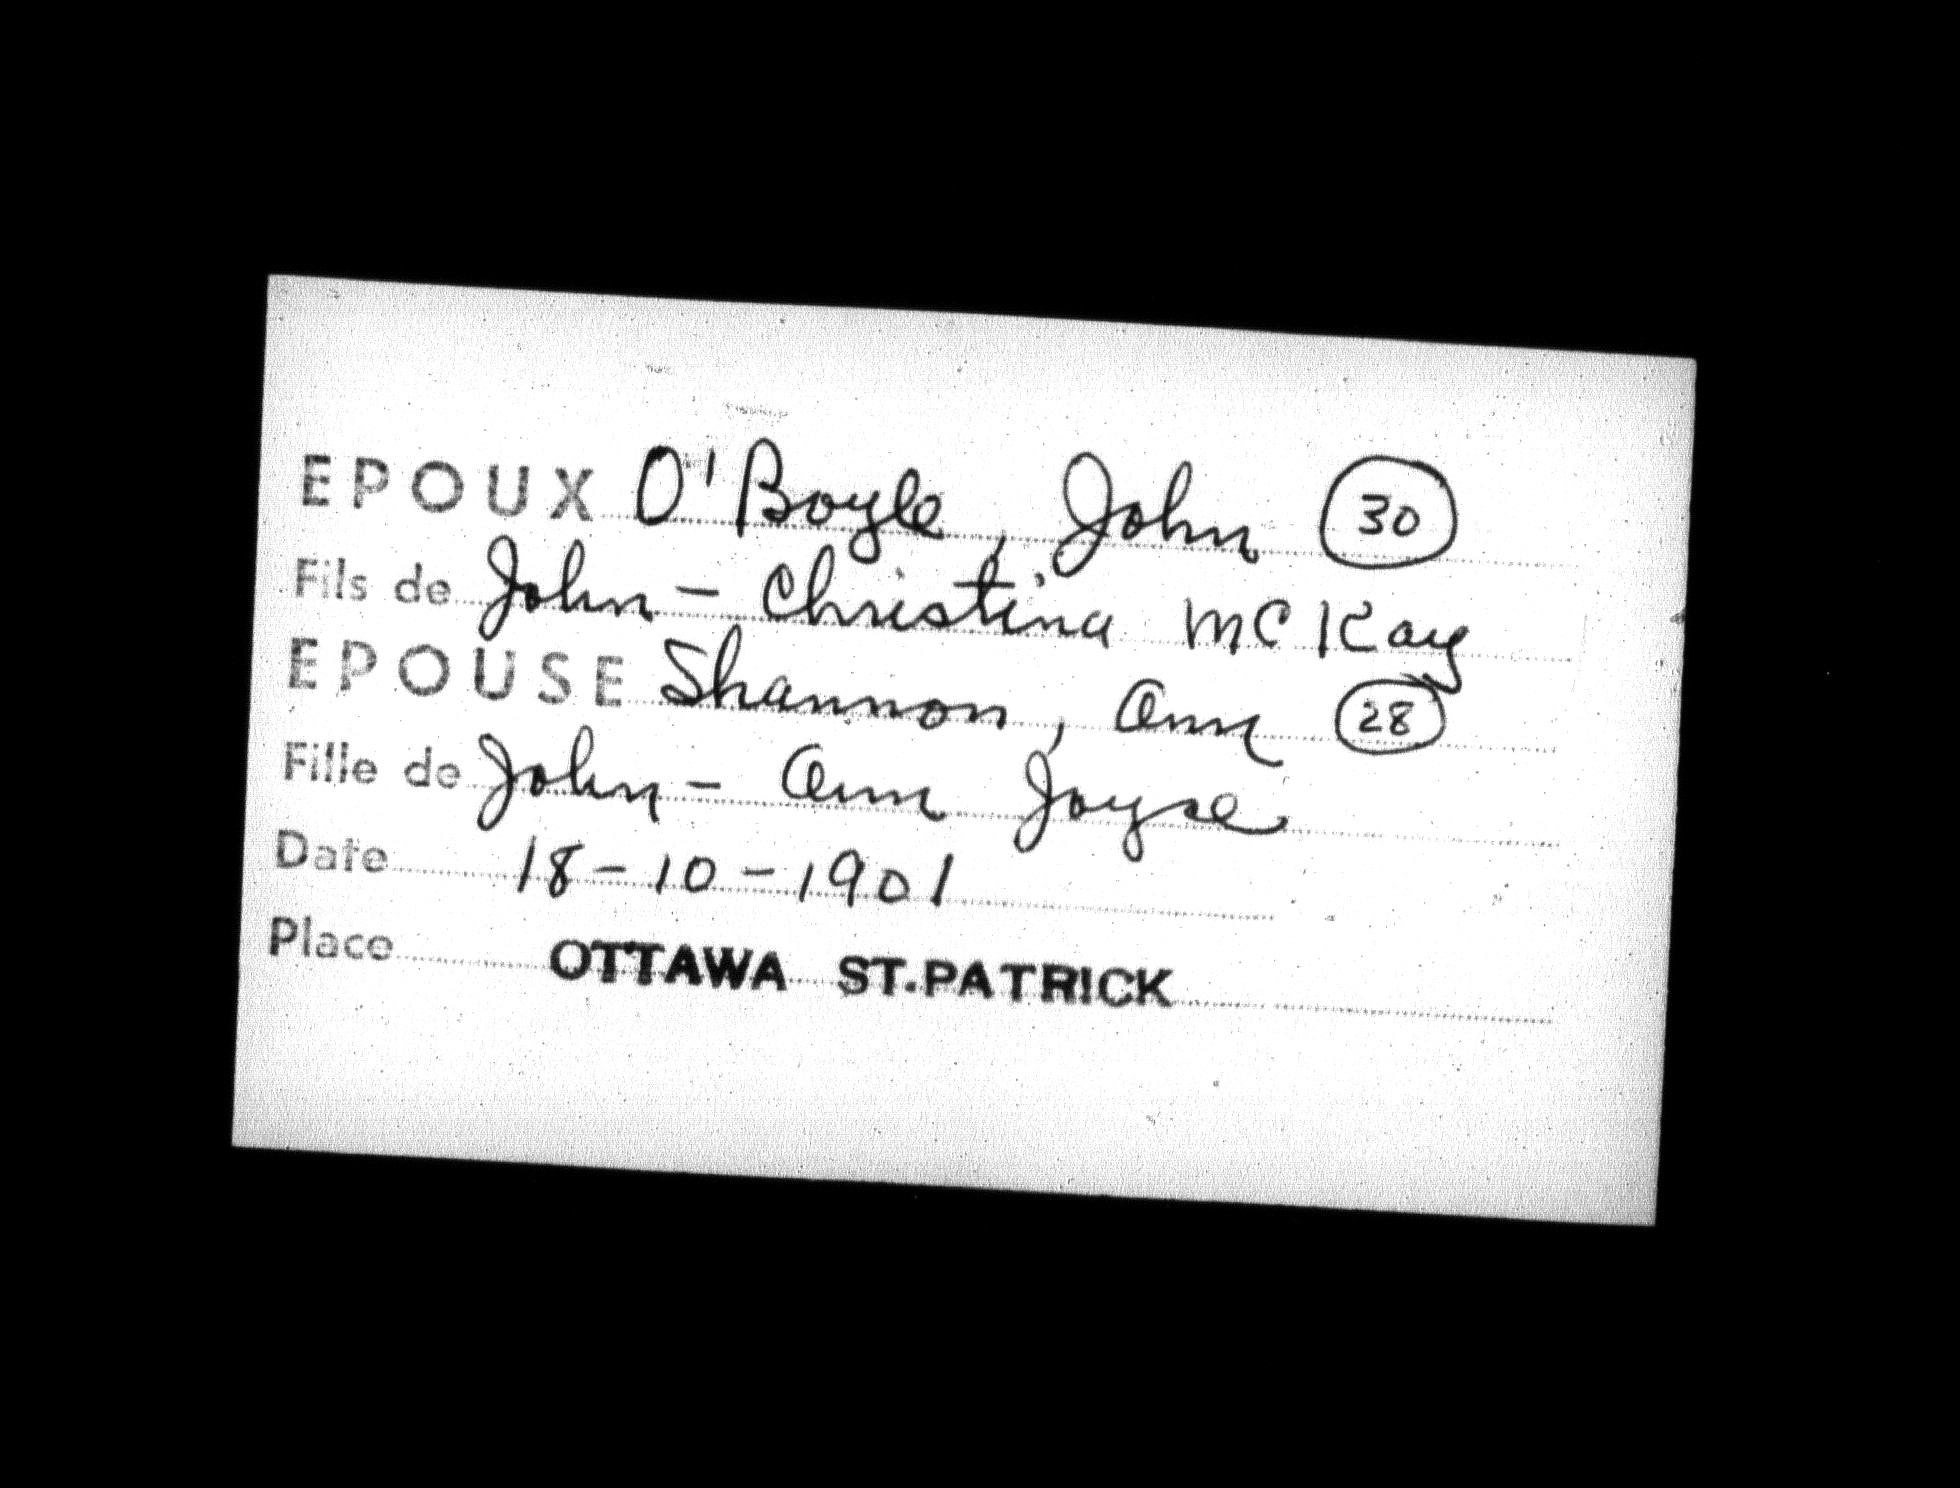 EPOUX O'Boyle, John 30
Fils de John - Christina McKay
EPOUSE Shannon, Ann 28
Fille de John - Ann Joyse
Date 18-10-1901
Place OTTAWA ST.PATRICK